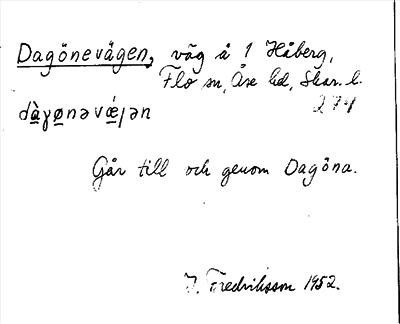 Dagönevägen, väg å 1 Håberg,
Flo sn, Åse hd, Skar. l.
274
dàɣønəvǽjən
Går till och genom Dagöna.
J. Fredriksson 1952.